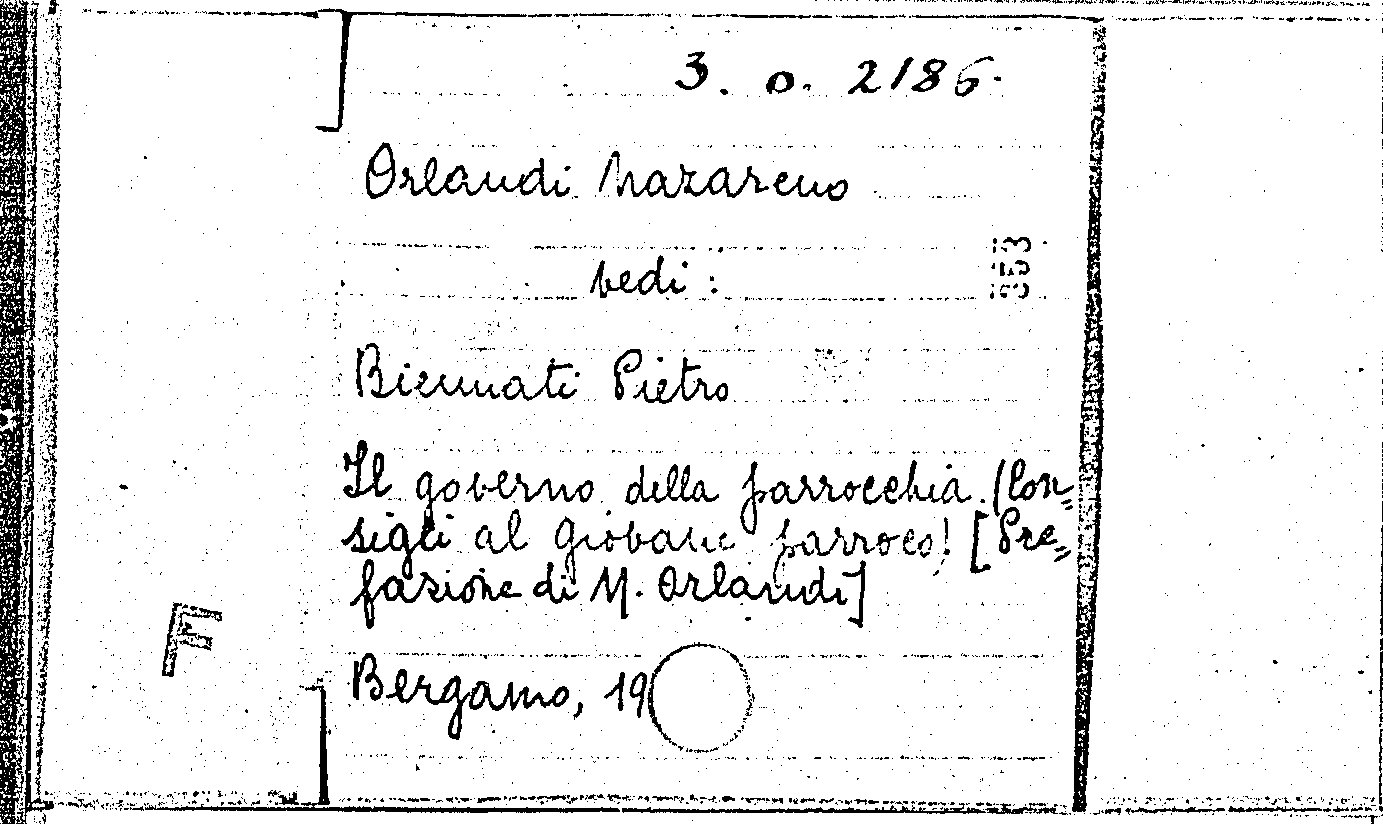 3. o. 2186.
Orlandi Nazareno
vedi :
353
Biennati Pietro
Il governo della parrocchia. (Con=
sigli al giovane parroco) [Pre=
fazione di N. Orlandi]
F
Bergamo, 19